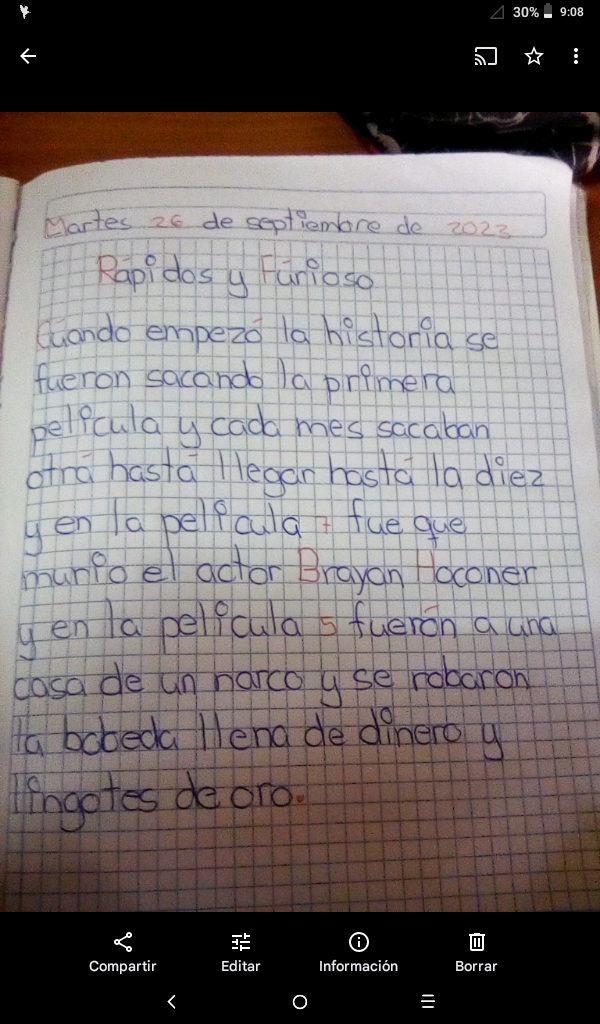 30% 9:08
Martes 26 de septiembre de 2023
Rápidos y Furioso
Cuando empezó la historia se
fueron sacando la primera
película y cada mes sacaban
otrá hastá llegar hastá la diez
y en la película 7 fue que
murio el actor Brayan Hoconer
y en la película 5 fuerón a una
casa de un narco y se robaron
la bobeda llena de dinero y
lingotes de oro.
Compartir Editar Información Borrar